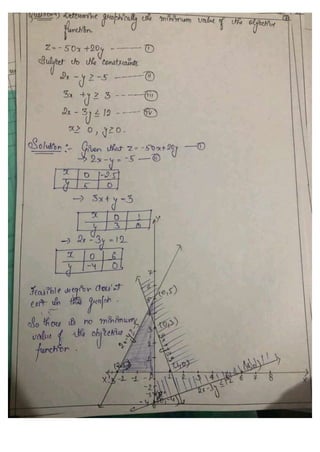 Question) Determine graphically the minimum value of the objective
function
Z = -50x + 20y ——— (i)
Subject to the constraints
2x - y ≥ -5 ——— (ii)
3x + y ≥ 3 ——— (iii)
2x - 3y ≤ 12 ——— (iv)
x ≥ 0, y ≥ 0.
Solution :- Given that z = -50x + 20y —(i)
→ 2x - y = -5 —(ii)
x 0 -2.5
y 5 0
→ 3x + y = 3
x 0 1
y 3 0
→ 2x - 3y = 12
x 0 6
y -4 0
Feasible region doesn't
exit in this graph.
So there is no minimum
value of the objective
function.
(0,5)
(0,3)
(1,0)
(0,-4)
2x-3y≤12